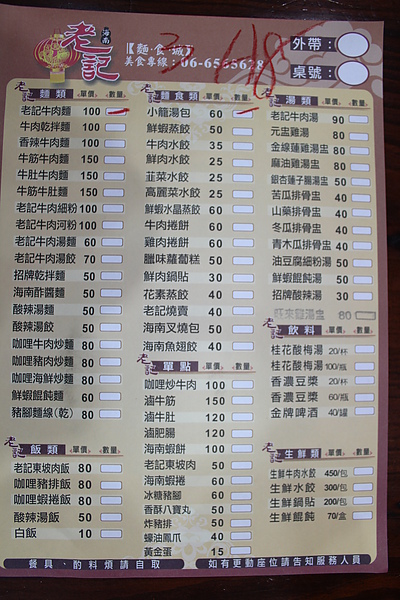 海南
老記
【麵·食·城】
美食專線：06-6555628
外帶：
桌號：
老記 麵類 單價 數量
老記牛肉麵 100
牛肉乾拌麵 100
香辣牛肉麵 100
牛筋牛肉麵 150
牛肚牛肉麵 150
牛筋牛肚麵 150
老記牛肉細粉 100
老記牛肉河粉 100
老記牛肉湯麵 60
老記牛肉湯餃 70
招牌乾拌麵 50
海南酢醬麵 50
酸辣湯麵 50
酸辣湯餃 50
咖哩牛肉炒麵 80
咖哩豬肉炒麵 80
咖哩海鮮炒麵 80
鮮蝦餛飩麵 60
豬腳麵線(乾) 80
老記 飯類 單價 數量
老記東坡肉飯 80
咖哩豬排飯 80
咖哩蝦捲飯 80
酸辣湯飯 50
白飯 10
老記 麵食類 單價 數量
小籠湯包 60
鮮蝦蒸餃 50
牛肉水餃 35
鮮肉水餃 25
韭菜水餃 25
高麗菜水餃 25
鮮蝦水晶蒸餃 60
牛肉捲餅 60
雞肉捲餅 60
臘味蘿蔔糕 50
鮮肉鍋貼 30
花素蒸餃 40
老記燒賣 40
海南叉燒包 50
海南魚翅餃 40
老記 單點 單價 數量
咖哩炒牛肉 100
滷牛筋 150
滷牛肚 120
滷肥腸 120
海南蝦餅 100
老記東坡肉 50
海南蝦捲 60
冰糖豬腳 60
香酥八寶丸 50
炸豬排 50
蠔油鳳爪 40
黃金蛋 15
老記 湯類 單價 數量
老記牛肉湯 90
元盅雞湯 80
金線蓮雞湯盅 80
麻油雞湯盅 80
銀杏蓮子腸湯盅 50
苦瓜排骨盅 40
山藥排骨盅 40
冬瓜排骨盅 40
青木瓜排骨盅 40
油豆腐細粉湯 50
鮮蝦餛飩湯 50
招牌酸辣湯 30
80
老記 飲料 單價 數量
桂花酸梅湯 20/杯
桂花酸梅湯 100/瓶
香濃豆漿 20/杯
香濃豆漿 60/瓶
金牌啤酒 40/罐
老記 生鮮類 單價 數量
生鮮牛肉水餃 450/包
生鮮水餃 300/包
生鮮鍋貼 200/包
生鮮餛飩 70/盒
餐具、酌料煩請自取
如有更動座位請告知服務人員